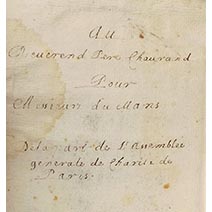 Au
Reverend Pere Chaurand
Pour
Monsieur du Mans
De la part de l'Assemblée
generale de Charité de
Paris.